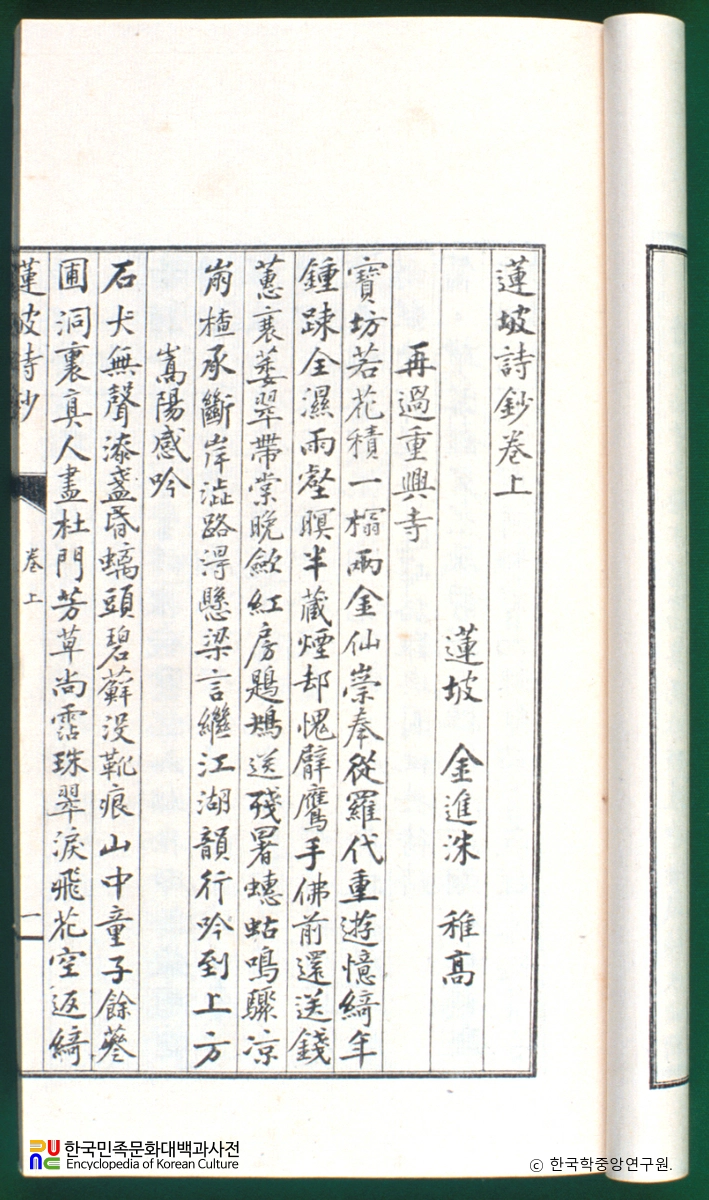 蓮坡詩鈔卷上
蓮坡 金進洙 稚高
再過重興寺
寶坊若花積一榻兩金仙崇奉從羅代重遊憶綺年
鍾踈全濕雨壑暝半藏煙却愧臂鷹手佛前還送錢
蕙衰萎翠帶棠晩斂紅房鶗鴂送殘署蟪蛄鳴驟凉
崩楂承斷岸澁路淂懸梁言繼江湖韻行吟到上方
嵩陽感吟
石犬無聲漆盞昏螭頭碧蘚没靴痕山中童子餘
圃洞裏真人盡杜門芳草尚霑珠翠淚飛花空返綺
蓮坡詩鈔
卷上
一
한국민족문화대백과사전
Encyclopedia of Korean Culture
ⓒ 한국학중앙연구원.